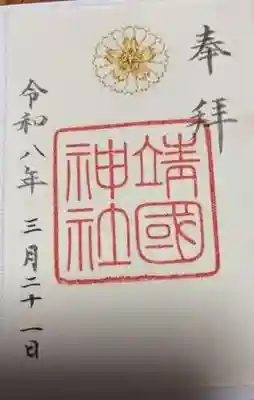 奉拝
靖國
神社
令和八年 三月二十一日